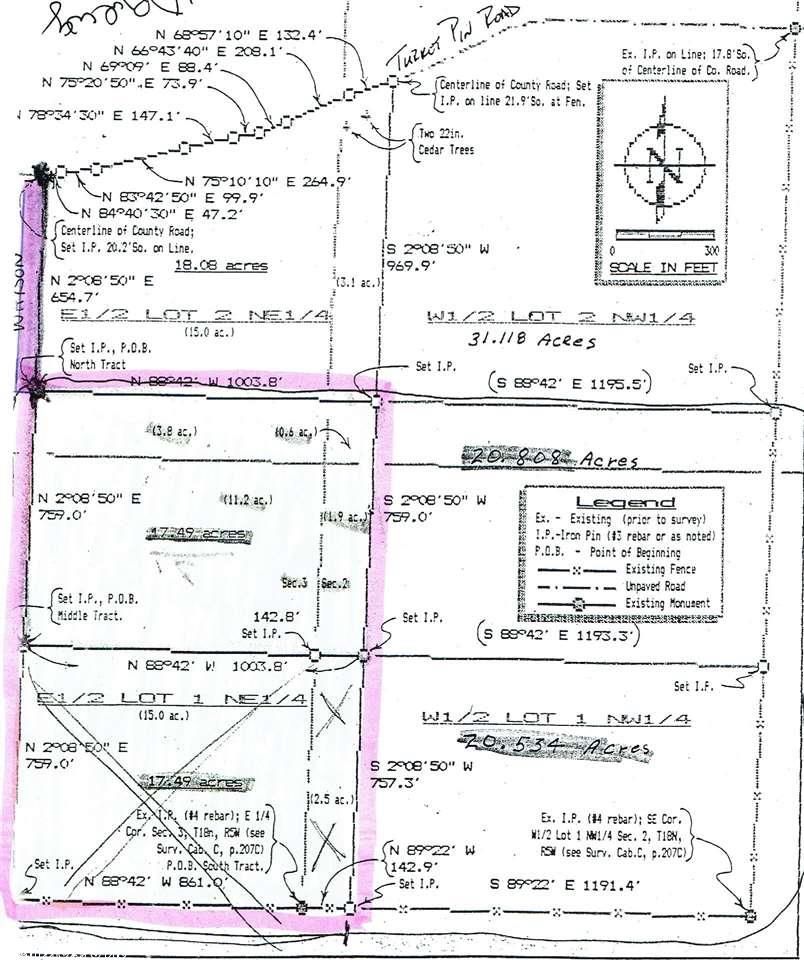 TURKEY PIN ROAD
N 68°57'10" E 132.4'
N 66°43'40" E 208.1'
N 69°09' E 88.4'
N 75°20'50" E 73.9'
N 78°34'30" E 147.1'
Ex. I.P. on Line; 17.8'So.
of Centerline of Co. Road.
Centerline of County Road; Set
I.P. on line 21.9'So. at Fen.
Two 22in.
Cedar Trees
N 75°10'10" E 264.9'
N 83°42'50" E 99.9'
N 84°40'30" E 47.2'
Centerline of County Road;
Set I.P. 20.2'So. on Line.
WATSON
18.08 acres
N 2°08'50" E
654.7'
S 2°08'50" W
969.9'
(3.1 ac.)
N
0 300
SCALE IN FEET
E1/2 LOT 2 NE1/4
(15.0 ac.)
W1/2 LOT 2 NW1/4
31.118 Acres
Set I.P., P.O.B.
North Tract
N 88°42' W 1003.8'
Set I.P.
(S 88°42' E 1195.5')
Set I.P.
(3.8 ac.)
(0.6 ac.)
20.808 Acres
N 2°08'50" E
759.0'
(11.2 ac.)
(1.9 ac.)
S 2°08'50" W
759.0'
17.49 acres
Legend
Ex. - Existing (prior to survey)
I.P.-Iron Pin (#3 rebar or as noted)
P.O.B. - Point of Beginning
Existing Fence
Unpaved Road
Existing Monument
Sec.3 Sec.2
Set I.P., P.O.B.
Middle Tract.
142.8'
Set I.P.
Set I.P.
(S 88°42' E 1193.3')
N 88°42' W 1003.8'
Set I.P.
E1/2 LOT 1 NE1/4
(15.0 ac.)
W1/2 LOT 1 NW1/4
20.534 Acres
N 2°08'50" E
759.0'
S 2°08'50" W
757.3'
17.49 acres
(2.5 ac.)
Ex. I.P. (#4 rebar); E 1/4
Cor. Sec. 3, T18n, R5W (see
Surv. Cab. C, p.207C)
P.O.B. South Tract.
Ex. I.P. (#4 rebar); SE Cor.
W1/2 Lot 1 NW1/4 Sec. 2, T18N,
R5W (see Surv. Cab.C, p.207C)
N 89°22' W
142.9'
Set I.P.
N 88°42' W 861.0'
Set I.P.
S 89°22' E 1191.4'